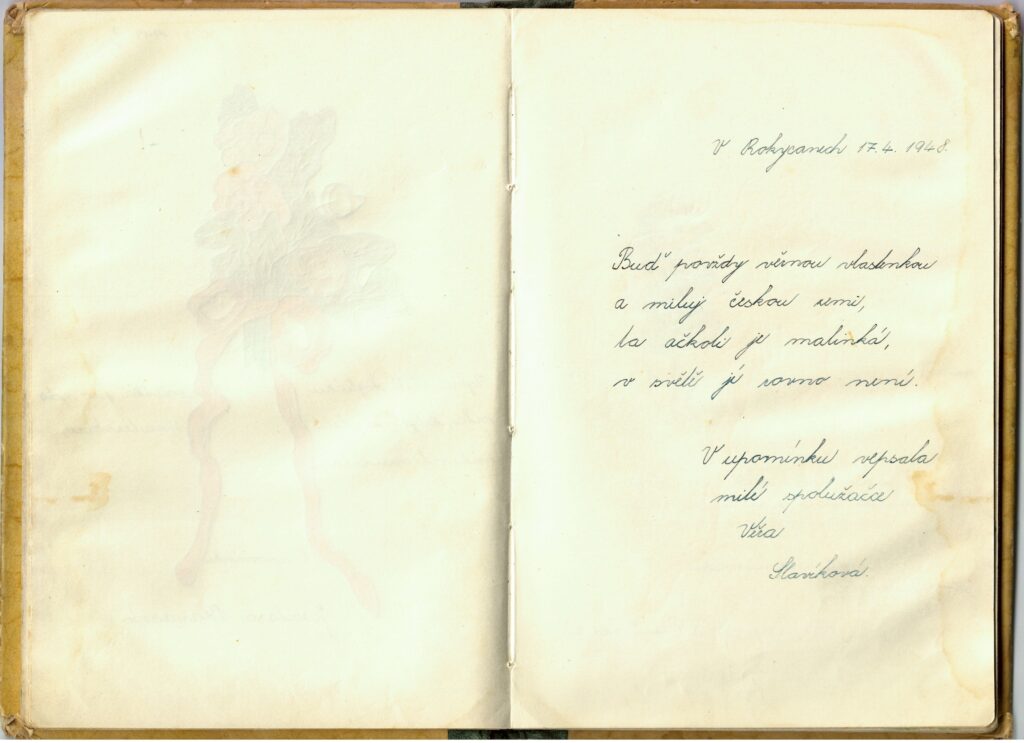 V Rokycanech 17.4. 1948.
Buď povždy věrnou vlastenkou
a miluj českou zemi,
ta ačkoli je malinká,
v světě jí rovno není.
V upomínku vepsala
milé spolužačce
Věra
Slavíková.